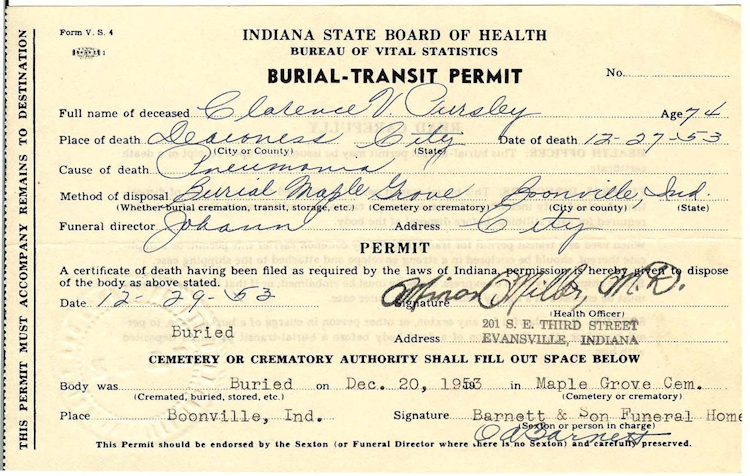 THIS PERMIT MUST ACCOMPANY REMAINS TO DESTINATION
Form V. S. 4
INDIANA STATE BOARD OF HEALTH
BUREAU OF VITAL STATISTICS
BURIAL-TRANSIT PERMIT
No.
Full name of deceased Clarence V. Pursley Age 74
Place of death Deaconess City Date of death 12-27-53
(City or County) (State)
Cause of death Pneumonia
Method of disposal Burial Maple Grove Boonville, Ind.
(Whether burial cremation, transit, storage, etc.) (Cemetery or crematory) (City or county) (State)
Funeral director Johann Address City
PERMIT
A certificate of death having been filed as required by the laws of Indiana, permission is hereby given to dispose
of the body as above stated.
Date 12-29-53 Signature Minor Miller, M.D.
(Health Officer)
Buried Address 201 S. E. THIRD STREET
EVANSVILLE, INDIANA
CEMETERY OR CREMATORY AUTHORITY SHALL FILL OUT SPACE BELOW
Body was Buried on Dec. 20, 1953 in Maple Grove Cem.
(Cremated, buried, stored, etc.) (Cemetery or crematory)
Place Boonville, Ind. Signature Barnett & Son Funeral Home
(Sexton or person in charge)
O A Barnett
This Permit should be endorsed by the Sexton (or Funeral Director where there is no Sexton) and carefully preserved.